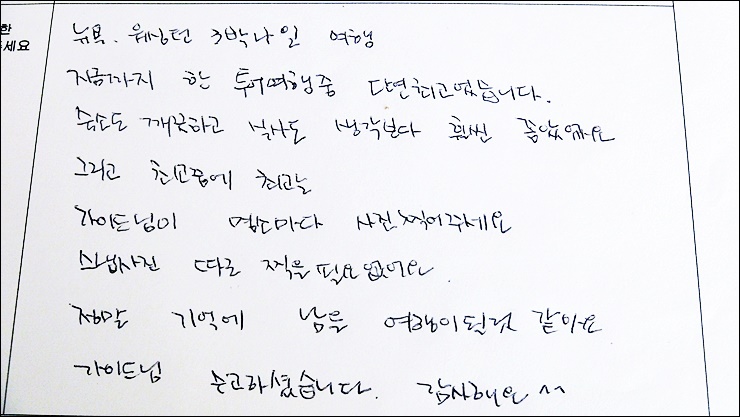 한
세요
뉴욕. 워싱턴 3박4일 여행
지금까지 한 투어여행중 단연최고였습니다.
숙소도 깨끗하고 식사도 생각보다 훨씬 좋았어요
그리고 최고중에 최고는
가이드님이 명소마다 사진찍어주세요
스냅사진 따로 찍을필요없어요
정말 기억에 남을 여행이될것 같아요
가이드님 수고하셨습니다. 감사해요 ^^